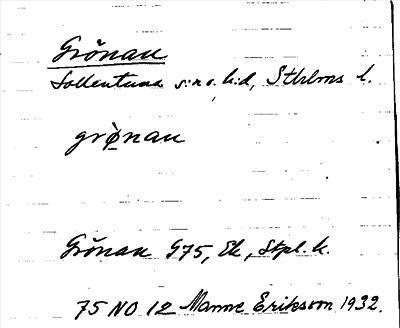 Grönau
Sollentuna s:n o. h:d, Sthlms l.
grø̀nau
Grönau G75, Ek, Stpl. k.
75 NO 12 Manne Eriksson 1932.